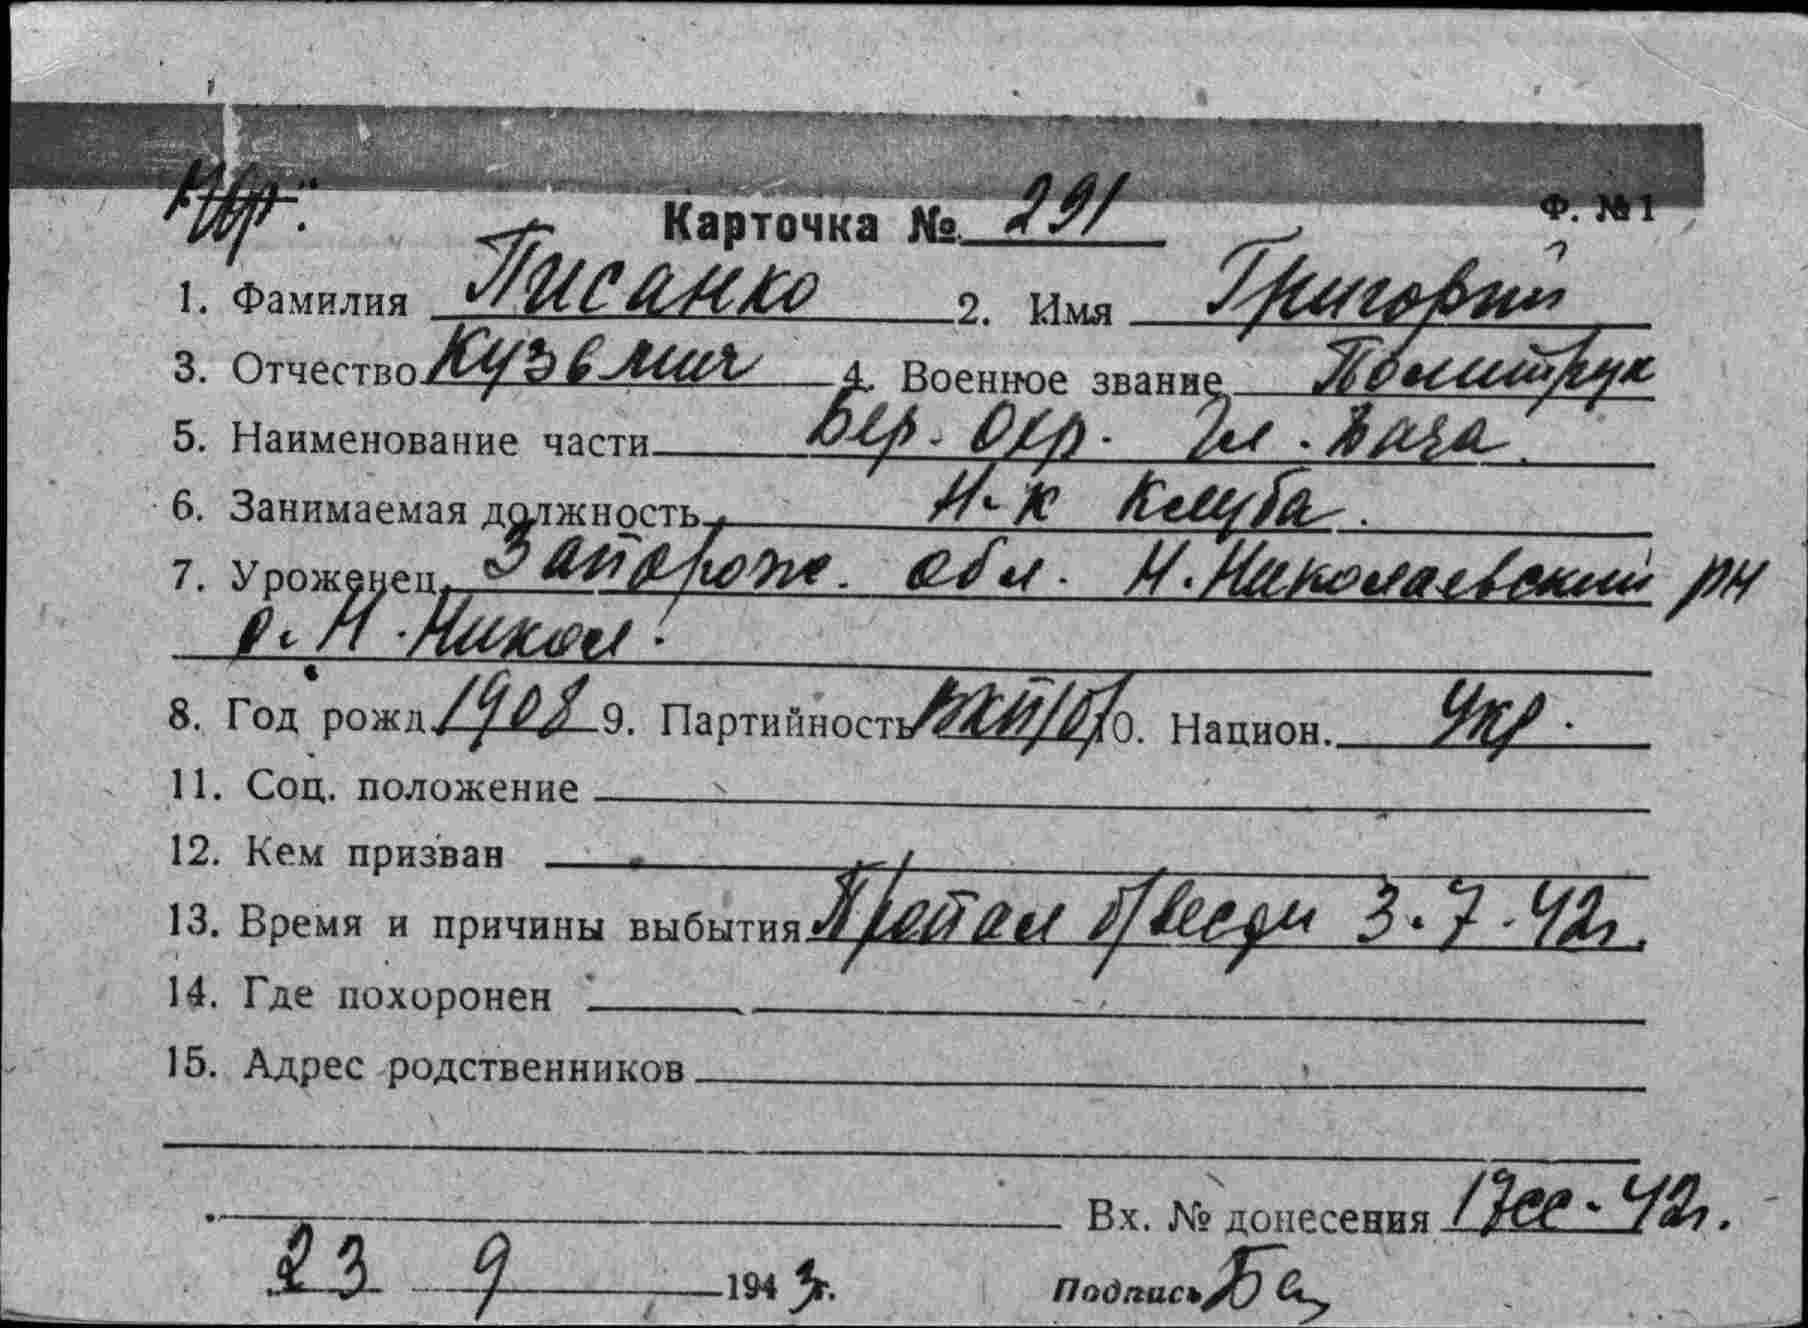 Карточка № 291 Ф. №1
1. Фамилия Писанко 2. Имя Григорий
3. Отчество Кузьмич 4. Военное звание Политрук
5. Наименование части Бер. Окр. Гл. База
6. Занимаемая должность Н-к Клуба.
7. Уроженец Запорож. обл. Н. Николаевский рн
с. Н. Никол.
8. Год рожд. 1908 9. Партийность ВКП/б/ 10. Национ. Укр.
11. Соц. положение
12. Кем призван
13. Время и причины выбытия Пропал б/вести 3.7.42г.
14. Где похоронен
15. Адрес родственников
Вх. № донесения 17сс-42г.
23 9 1943г. Подпись